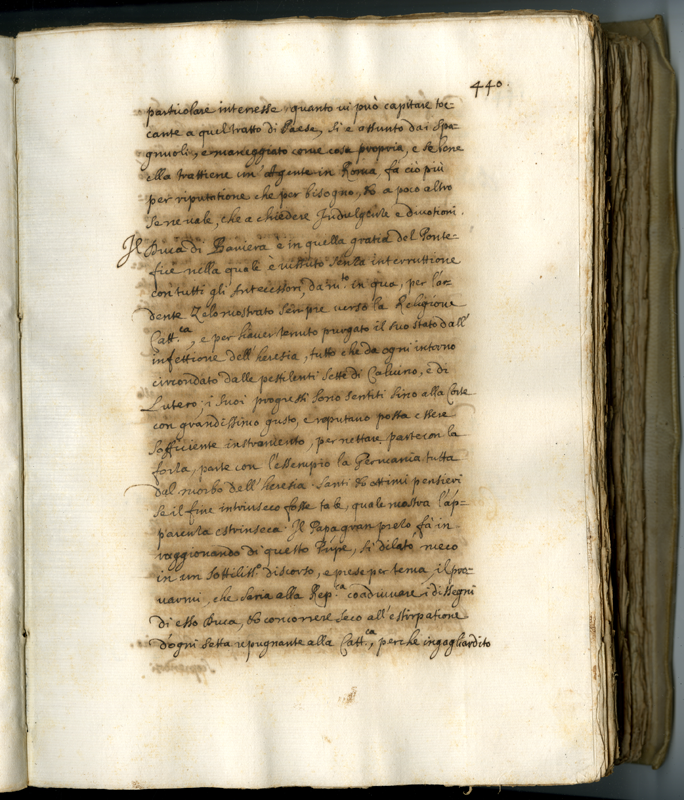 440.
particolare interesse quanto vi può capitare toc-
cante a quel tratto di Paese, si è assunto dai Spa-
gnuoli, e maneggiato come cosa propria, e se bene
ella trattiene un' Agente in Roma, fà ciò più
per riputatione che per bisogno, & a poco altro
se ne vale, che a chiedere Indulgenze e divotioni.
Il Duca di Baviera è in quella gratia del Ponte-
fice nella quale è vissuto senza interruttione
con tutti gli Antecessori, da m.to in qua, per l'ar-
dente Zelo mostrato sempre verso la Religione
Catt.ca, e per haver tenuto purgato il suo stato dall'
infettione dell'heresia, tutto che da ogni intorno
circondato dalle pestilenti sette di Calvino, e di
Lutero; i suoi progressi sono sentiti sino alla Corte
con grandissimo gusto, e reputano possa essere
sofficiente instramento, per nettare parte con la
forza, parte con l'essempio la Germania tutta
dal morbo dell'heresia. Santi & ottimi pensieri
se il fine intrinseco fosse tale, quale mostra l'ap-
parenza estrinseca. Il Papa gran preso fà in
raggionando di questo Prnpe, si dilatò meco
in un sottiliss.o discorso, e prese per tema, il pro-
varmi, che seria alla Rep.ca coadiuvare i dissegni
di esso Duca, & concorrere seco all'estirpatione
d'ogni setta repugnante alla Catt.ca, perche ingagliardito